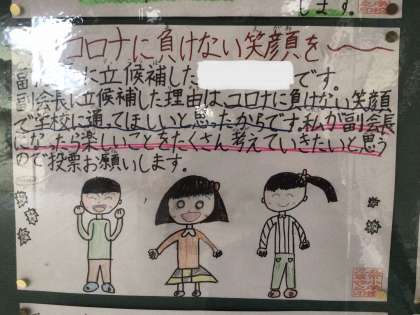 します。
コロナに負けない笑顔を
副会長に立候補した です。
副会長に立候補した理由は、コロナに負けない笑顔
で学校に通ってほしいと思ったからです。私が副会長
になったら楽しいことをたくさん考えていきたいと思う
ので投票お願いします。